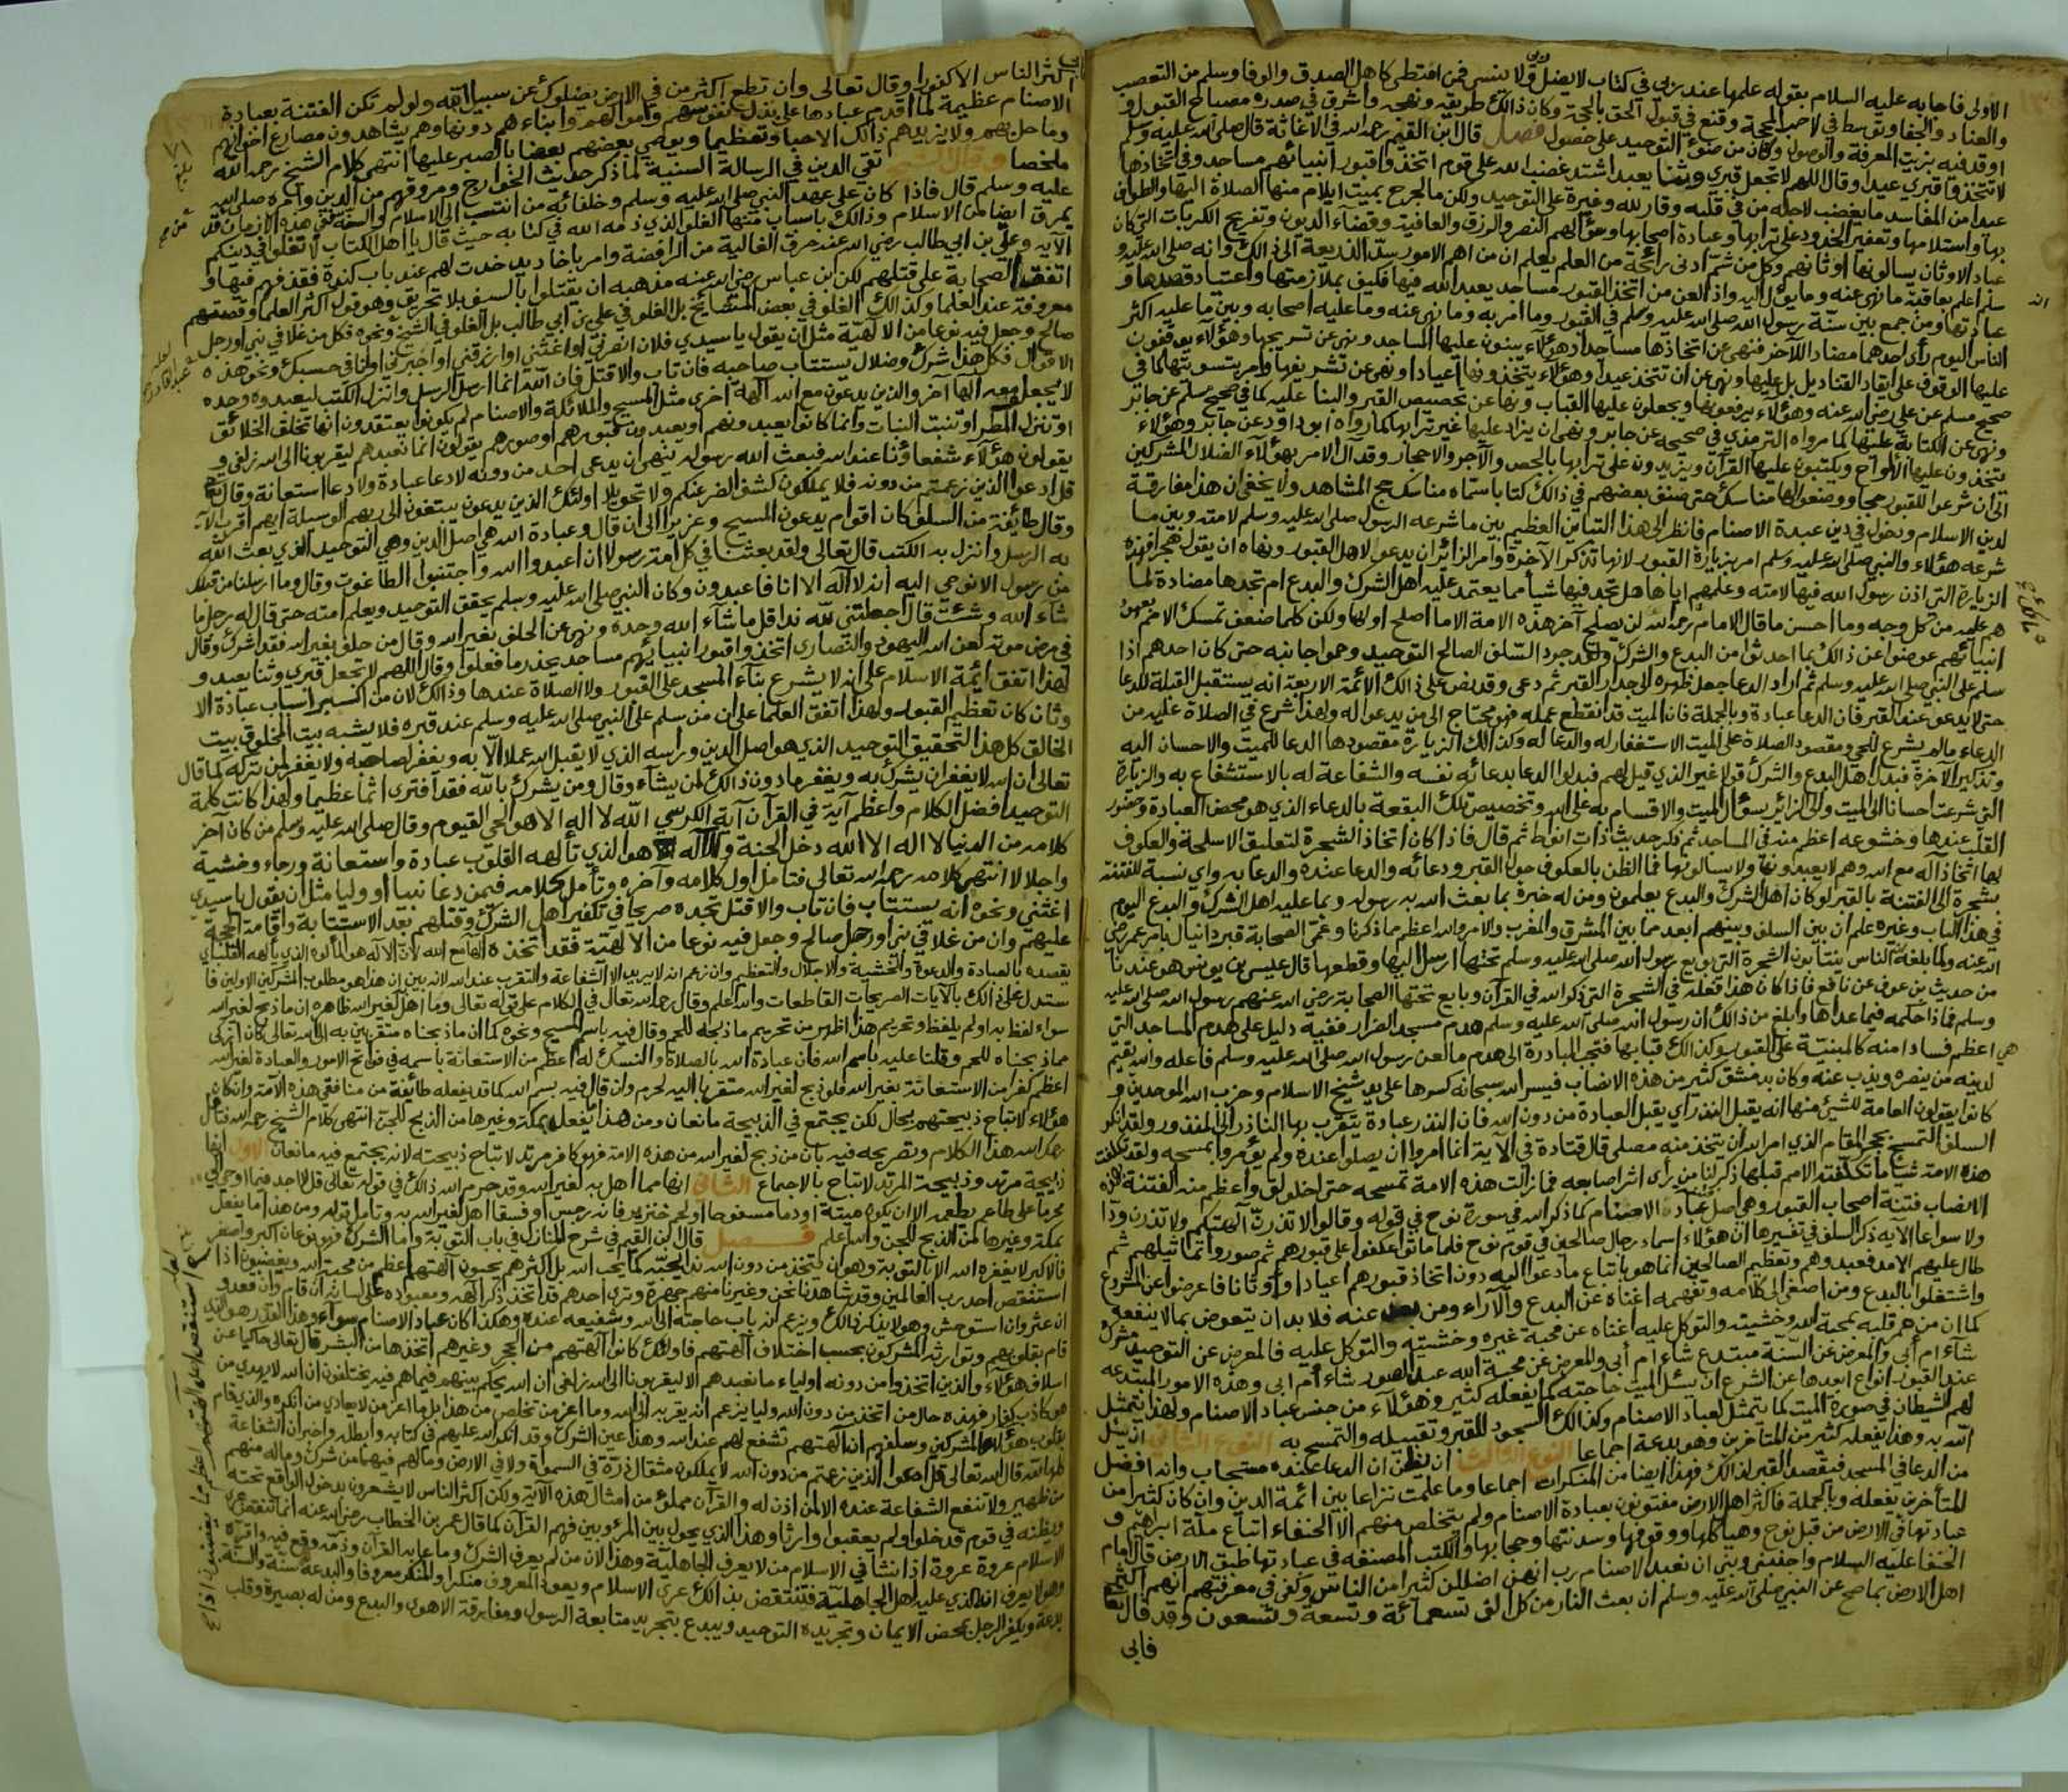 الاولى فاجابه عليه السلام بقوله علمها عند ربي في كتاب لا يضل ربي ولا ينسى فمن امتطى كاهل الصدق والوفا وسلم من التعصب
والعناد والجفا وتوسط في لاحب المحجة وقنع في قبول الحق بالحجة وكان ذالك طريقه ونهجه واشرق في صدره مصباح القبول و
اوقد فيه بزيت المعرفة والوصول وكان من ضوء التوحيد على حصول فصل قال ابن القيم رحمه الله في الاغاثة قال صلى الله عليه وسلم
لا تتخذوا قبري عيدا وقال اللهم لا تجعل قبري وثنا يعبد اشتد غضب الله على قوم اتخذوا قبور انبيائهم مساجد وفي اتخاذها
عيدا من المفاسد ما يغضب لاجله من في قلبه وقار لله وغيرة على التوحيد ولكن ما لجرح بميت ايلام منها الصلاة اليها والطواف
بها واستلامها وتعفير الخدود على ترابها وعبادة اصحابها وسؤالهم النصر والرزق والعافية وقضاء الديون وتفريج الكربات التي كان
عباد الاوثان يسالونها اوثانهم وكل من شم ادنى رائحة من العلم يعلم ان من اهم الامور سد الذريعة الى ذالك وانه صلى الله عليه و
سلم اعلم بعاقبة ما نهى عنه وما يؤل اليه واذا لعن من اتخذ القبور مساجد يعبد الله فيها فكيف بملازمتها واعتياد قصدها و
عبادتها ومن جمع بين سنة رسول الله صلى الله عليه وسلم في القبور وما امر به وما نهى عنه وما عليه اصحابه وبين ما عليه اكثر
الناس اليوم رأى احدهما مضادا للآخر فنهى عن اتخاذها مساجد وهؤلاء يبنون عليها المساجد ونهى عن تسريجها وهؤلاء يوقفون
عليها الوقوف على ايقاد القناديل بل عليها ونهى عن ان تتخذ عيدا وهؤلاء يتخذونها اعيادا ونهى عن تشريفها وامر بتسويتها كما في
صحيح مسلم عن علي رضي الله عنه وهؤلاء يرفعونها ويجعلون عليها القباب ونها عن تجصيص القبر والبنا عليه كما في صحيح مسلم عن جابر
ونهى عن الكتابة عليها كما رواه الترمذي في صحيحه عن جابر ونهى ان يزاد عليها غير ترابها كما رواه ابو داود عن جابر وهؤلاء
يتخذون عليها الألواح ويكتبون عليها القرآن ويزيدون على ترابها بالجص والآجر والاحجار وقد آل الامر بهؤلاء الضلال المشركين
الى ان شرعوا للقبور حجا ووضعوا لها مناسك حتى صنف بعضهم في ذالك كتابا سماه مناسك حج المشاهد ولا يخفى ان هذا مفارقة
لدين الاسلام ودخول في دين عبدة الاصنام فانظر الى هذا التباين العظيم بين ما شرعه الرسول صلى الله عليه وسلم لامته وبين ما
شرعه هؤلاء والنبي صلى الله عليه وسلم امر بزيارة القبور لانها تذكر الآخرة وامر الزائر ان يدعو لاهل القبور ونهاه ان يقول هجرا فهذه
الزيارة التي اذن رسول الله فيها لامته وعلمهم اياها هل تجد فيها شيأ مما يعتمد عليه اهل الشرك والبدع ام تجدها مضادة لما
هم عليه من كل وجه وما احسن ما قال الامام رحمه الله لن يصلح آخر هذه الامة الا ما اصلح اولها ولكن كلما ضعف تمسك الامم بعهود
انبيائهم عوضوا عن ذالك بما احدثوا من البدع والشرك ولقد جرد السلف الصالح التوحيد وحموا جانبه حتى كان احدهم اذا
سلم على النبي صلى الله عليه وسلم ثم اراد الدعا جعل ظهره الى جدار القبر ثم دعى وقد نص على ذالك الائمة الاربعة انه يستقبل القبلة للدعا
حتى لا يدعو عند القبر فان الدعا عبادة وبالجملة فان الميت قد انقطع عمله فهو محتاج الى من يدعو له ولهذا شرع في الصلاة عليه من
الدعاء مالم يشرع للحي ومقصود الصلاة على الميت الاستغفار له والدعا له وكذالك الزيارة مقصودها الدعا للميت والاحسان اليه
وتذكير الآخرة فبدل اهل البدع والشرك قولا غير الذي قيل لهم فبدلوا الدعا بدعائه نفسه والشفاعة له بالاستشفاع به والزيارة
التي شرعت احسانا الى الميت والى الزائر بسؤال الميت والاقسام به على الله وتخصيص تلك البقعة بالدعاء الذي هو محض العبادة وحضور
القلب عندها وخشوعه اعظم منه في المساجد ثم ذكر حديث ذات انواط ثم قال فاذا كان اتخاذ الشجرة لتعليق الاسلحة والعكوف
لها اتخاذ آله مع الله وهم لا يعبدونها ولا يسالونها فما الظن بالعكوف حول القبر ودعائه والدعا عنده والدعا به واي نسبة للفتنة
بشجرة الى الفتنة بالقبر لو كان اهل الشرك والبدع يعلمون ومن له خبرة بما بعث الله به رسوله وبما عليه اهل الشرك والبدع اليوم
في هذا الباب وغيره علم ان بين السلف وبينهم ابعد مما بين المشرق والمغرب والامر والله اعظم مما ذكرنا وعمى الصحابة قبر دانيال بامر عمر رضي
الله عنه ولما بلغه ان الناس ينتابون الشجرة التي بويع رسول الله صلى الله عليه وسلم تحتها ارسل اليها وقطعها قال عيسى بن يونس هو عندنا
من حديث بن عوف عن نافع فاذا كان هذا فعله في الشجرة التي ذكر الله في القرآن وبايع تحتها الصحابة رضي الله عنهم رسول الله صلى الله عليه
وسلم فماذا حكمه فيما عداها وابلغ من ذالك ان رسول الله صلى الله عليه وسلم هدم مسجد الضرار ففيه دليل على هدم المساجد التي
هي اعظم فسادا منه كالمبنية على القبور وكذالك قبابها فتجب المبادرة الى هدم ما لعن رسول الله صلى الله عليه وسلم فاعله والله يقيم
لدينه من ينصره ويذب عنه وكان بدمشق كثير من هذه الانصاب فيسر الله سبحانه كسرها على يد شيخ الاسلام وحزب الله الموحدين و
كانوا يقولون العامة للشيئ منها انه يقبل النذر اي يقبل العبادة من دون الله فان النذر عبادة يتقرب بها الناذر الى المنذور ولقد انكر
السلف التمسح بحجر المقام الذي امر الله ان يتخذ منه مصلى قال قتادة في الآية انما امروا ان يصلوا عنده ولم يؤمروا بمسحه ولقد تكلفت
هذه الامة شيئا ما تكلفته الامم قبلها ذكر لنا من رأى اثر اصابعه فما زالت هذه الامة تمسحه حتى اخلولق واعظم منه الفتنة بهذه
الانصاب فتنة اصحاب القبور وهي اصل عبادة الاصنام كما ذكر الله في سورة نوح في قوله وقالوا لا تذرن آلهتكم ولا تذرن ودا
ولا سواعا الآية ذكر السلف في تفسيرها ان هؤلاء اسماء رجال صالحين في قوم نوح فلما ماتوا عكفوا على قبورهم ثم صوروا تماثيلهم ثم
طال عليهم الامد فعبدوهم وتعظيم الصالحين انما هو باتباع ما دعوا اليه دون اتخاذ قبورهم اعيادا واوثانا فاعرضوا عن المشروع
واشتغلوا بالبدع ومن اصغى الى كلامه وتفهمه اغناه عن البدع والآراء ومن عنه فلا بد ان يتعوض بما لا ينفعه
كما ان من عمر قلبه بمحبة الله وخشيته والتوكل عليه اغناه عن محبة غيره وخشيته والتوكل عليه فالمعرض عن التوحيد مشرك
شاء ام أبى والمعرض عن السنة مبتدع شاء ام أبى والمعرض عن محبة الله عبد الصور شاء ام ابى وهذه الامور المبتدعه
عند القبور انواع ابعدها عن الشرع ان يسئل الميت حاجته كما يفعله كثير وهؤلاء من جنس عباد الاصنام ولهذا يتمثل
لهم الشيطان في صورة الميت كما يتمثل لعباد الاصنام وكذالك السجود للقبر وتقبيله والتمسح به النوع الثاني ان يسئل
الله به وهذا يفعله كثير من المتأخرين وهو بدعة اجماعا النوع الثالث ان يظن ان الدعا عنده مستجاب وانه افضل
من الدعا في المسجد فيقصد القبر لذالك فهذا ايضا من المنكرات اجماعا وما علمت نزاعا بين ائمة الدين وان كان كثير من
المتأخرين يفعله وبالجملة فاكثر اهل الارض مفتونون بعبادة الاصنام ولم يتخلص منهم الا الحنفاء اتباع ملة ابراهيم و
عبادتها في الارض من قبل نوح وهياكلها ووقوفها وسدنتها وحجابها والكتب المصنفه في عبادتها طبق الارض قال امام
الحنفا عليه السلام واجنبني وبني ان نعبد الاصنام رب انهن اضللن كثيرا من الناس وكفى في معرفتهم انهم اكثر
اهل الارض بما صح عن النبي صلى الله عليه وسلم ان بعث النار من كل الف تسعمائة وتسعة وتسعون وقد قال تعالى
فابى
اكثر الناس الا كفورا وقال تعالى وان تطع اكثر من في الارض يضلوك عن سبيل الله ولو لم تكن الفتنة بعبادة
الاصنام عظيمة لما اقدم عبادها على بذل نفوسهم واموالهم وابناءهم دونها وهم يشاهدون مصارع اخوانهم
وما حل بهم ولا يزيدهم ذالك الا حبا وتعظيما ويوصي بعضهم بعضا بالصبر عليها انتهى كلام الشيخ رحمه الله
ملخصا وقال الشيخ تقي الدين في الرسالة السنية لما ذكر حديث الخوارج ومروقهم من الدين وامره صلى الله
عليه وسلم قال فاذا كان على عهد النبي صلى الله عليه وسلم وخلفائه من انتسب الى الاسلام والسنة ففي هذه الازمان قد
يمرق ايضا من الاسلام وذالك باسباب منها الغلو الذي ذمه الله في كتابه حيث قال يا اهل الكتاب لا تغلوا في دينكم
الآية وعلي بن ابي طالب رضي الله عنه حرق الغالية من الرافضة وامر باخاديد خدت لهم عند باب كندة فقذفهم فيها و
اتفق الصحابة على قتلهم لكن ابن عباس رضي الله عنه مذهبه ان يقتلوا بالسيف بلا تحريق وهو قول اكثر العلما وقصتهم
معروفة عند العلما وكذالك الغلو في بعض المشايخ بل الغلو في علي بن ابي طالب بل الغلو في الشيخ ونحوه فكل من غلا في نبي او رجل
صالح وجعل فيه نوعا من الالهية مثل ان يقول يا سيدي فلان انصرني او اغثني او ارزقني او اجبرني او انا في حسبك ونحو هذه
الاقوال فكل هذا شرك وضلال يستتاب صاحبه فان تاب والا قتل فان الله انما ارسل الرسل وانزل الكتب ليعبدوه وحده
لا يجعل معه الها آخر والذين يدعون مع الله آلهة اخرى مثل المسيح والملائكة والاصنام لم يكونوا يعتقدون انها تخلق الخلائق
او تنزل المطر او تنبت النبات وانما كانوا يعبدونهم او يعبدون قبورهم او صورهم يقولون انما نعبدهم ليقربونا الى الله زلفى و
يقولون هؤلاء شفعاؤنا عند الله فبعث الله رسوله ينهى ان يدعى احد من دونه لا دعا عبادة ولا دعا استعانة وقال تعالى
قل ادعوا الذين زعمتم من دونه فلا يملكون كشف الضر عنكم ولا تحويلا اولئك الذين يدعون يبتغون الى ربهم الوسيلة ايهم اقرب الآية
وقال طائفة من السلف كان اقوام يدعون المسيح وعزيرا الى ان قال وعبادة الله هي اصل الدين وهي التوحيد الذي بعث الله
به الرسل وانزل به الكتب قال تعالى ولقد بعثنا في كل امة رسولا ان اعبدوا الله واجتنبوا الطاغوت وقال وما ارسلنا من قبلك
من رسول الا نوحي اليه انه لا اله الا انا فاعبدون وكان النبي صلى الله عليه وسلم يحقق التوحيد ويعلم امته حتى قال له رجل ما
شاء الله وشئت قال أجعلتني لله ندا قل ما شاء الله وحده ونهى عن الحلف بغير الله وقال من حلف بغير الله فقد اشرك وقال
في مرض موته لعن الله اليهود والنصارى اتخذوا قبور انبيائهم مساجد يحذر ما فعلوا وقال اللهم لا تجعل قبري وثنا يعبد و
لهذا اتفق ائمة الاسلام على انه لا يشرع بناء المسجد على القبور ولا الصلاة عندها وذالك لان من اكبر اسباب عبادة الا
وثان كان تعظيم القبور ولهذا اتفق العلما على ان من سلم على النبي صلى الله عليه وسلم عند قبره فلا يشبه بيت المخلوق بيت
الخالق كل هذا لتحقيق التوحيد الذي هو اصل الدين وراسه الذي لا يقبل الله عملا الا به ويغفر لصاحبه ولا يغفر لمن تركه كما قال
تعالى ان الله لا يغفر ان يشرك به ويغفر ما دون ذالك لمن يشاء وقال ومن يشرك بالله فقد افترى اثما عظيما ولهذا كانت كلمة
التوحيد افضل الكلام واعظم آية في القرآن آية الكرسي الله لا اله الا هو الحي القيوم وقال صلى الله عليه وسلم من كان آخر
كلامه من الدنيا لا اله الا الله دخل الجنة والاله هو الذي تألهه القلوب عبادة واستعانة ورجاء وخشية
واجلالا انتهى كلامه رحمه الله تعالى فتامل اول كلامه وآخره وتأمل كلامه فيمن دعا نبيا او وليا مثل ان يقول يا سيدي
اغثني ونحوه انه يستتاب فان تاب والا قتل تجده صريحا في تكفير اهل الشرك وقتلهم بعد الاستتابة واقامة الحجة
عليهم وان من غلا في نبي او رجل صالح وجعل فيه نوعا من الالهية فقد اتخذه الها مع الله لان الاله هو المألوه الذي يألهه القلب اي
يقصده بالعبادة والدعوة والخشية والاجلال والتعظيم وان زعم انه لا يريد الا الشفاعة والتقرب عند الله لانه بين ان هذا هو مطلوب المشركين الاولين فا
ستدل على ذالك بالآيات الصريحات القاطعات والله اعلم وقال رحمه الله تعالى في الكلام على قوله تعالى وما اهل لغير الله ظاهره ان ما ذبح لغير الله
سواء لفظ به او لم يلفظ وتحريم هذا اظهر من تحريم ما ذبحه للحم وقال فيه باسم المسيح ونحوه كما ان ما ذبحناه متقربين به الى الله تعالى كان ازكى
مما ذبحناه للحم وقلنا عليه باسم الله فان عبادة الله بالصلاة والنسك له اعظم من الاستعانة باسمه في فواتح الامور والعبادة لغير الله
اعظم كفرا من الاستعانة بغير الله فلو ذبح لغير الله متقربا اليه لحرم وان قال فيه بسم الله كما قد يفعله طائفة من منافقي هذه الامة وان كان
هؤلاء لا تباح ذبيحتهم بحال لكن يجتمع في الذبيحة مانعان ومن هذا ما يفعل بمكة وغيرها من الذبح للجن انتهى كلام الشيخ رحمه الله فتأمل
رحمك الله هذا الكلام وتصريحه فيه بان من ذبح لغير الله من هذه الامة فهو كافر مرتد لا تباح ذبيحته لانه يجتمع فيه مانعان الاول انها
ذبيحة مرتد وذبيحة المرتد لا تباح بالاجماع الثاني انها مما اهل به لغير الله وقد حرم الله ذالك في قوله تعالى قل لا اجد فيما اوحي الي
محرما على طاعم يطعمه الا ان يكون ميتة او دما مسفوحا او لحم خنزير فانه رجس او فسقا اهل لغير الله به وتامل قوله ومن هذا ما يفعل
بمكة وغيرها من الذبح للجن والله اعلم فصل قال ابن القيم في شرح المنازل في باب التوبة واما الشرك فهو نوعان اكبر واصغر
فالاكبر لا يغفره الله الا بالتوبة وهو ان يتخذ من دون الله ندا يحبه كما يحب الله بل اكثرهم يحبون آلهتهم اعظم من محبة الله ويغضبون اذا
استنقص احد رب العالمين وقد شاهدنا نحن وغيرنا منهم جهرة وترى احدهم قد اتخذ ذكر الهه ومعبوده على لسانه ان قام وان قعد و
ان عثر وان استوحش وهو لا ينكر ذالك ويزعم انه باب حاجته الى الله وشفيعه عنده وهكذا كان عباد الاصنام سواء وهذا القدر هو الذي
قام بقلوبهم وتوارثه المشركون بحسب اختلاف آلهتهم فاولئك كانوا آلهتهم من الحجر وغيرهم اتخذها من البشر قال تعالى حاكيا عن
اسلاف هؤلاء والذين اتخذوا من دونه اولياء ما نعبدهم الا ليقربونا الى الله زلفى ان الله يحكم بينهم فيما هم فيه يختلفون ان الله لا يهدي من
هو كاذب كفار فهذه حال من اتخذ من دون الله وليا يزعم انه يقربه الى الله وما اعز من تخلص من هذا بل ما اعز من لا يعادي من انكره والذي قام
بقلوب هؤلاء المشركين وسلفهم ان آلهتهم تشفع لهم عند الله وهذا عين الشرك وقد انكر الله عليهم في كتابه وابطله واخبر ان الشفاعة
كلها له قال الله تعالى قل ادعوا الذين زعمتم من دون الله لا يملكون مثقال ذرة في السموات ولا في الارض وما لهم فيهما من شرك وما له منهم
من ظهير ولا تنفع الشفاعة عنده الا لمن اذن له والقرآن مملوء من امثال هذه الآية ولكن اكثر الناس لا يشعرون بدخول الواقع تحته
ويظنه في قوم قد خلوا ولم يعقبوا وارثا وهذا الذي يحول بين المرئ وبين فهم القرآن كما قال عمر بن الخطاب رضي الله عنه انما تنقض عرى
الاسلام عروة عروة اذا نشأ في الاسلام من لا يعرف الجاهلية وهذا لان من لم يعرف الشرك وما عابه القرآن وذمه وقع فيه واقره
وهو لا يعرف انه الذي عليه اهل الجاهلية فتنتقض بذالك عرى الاسلام ويعود المعروف منكرا والمنكر معروفا والبدعة سنة والسنة
بدعة ويكفر الرجل بمحض الايمان وتجريده التوحيد ويبدع بتجريد متابعة الرسول ومفارقة الاهوى والبدع ومن له بصيرة وقلب